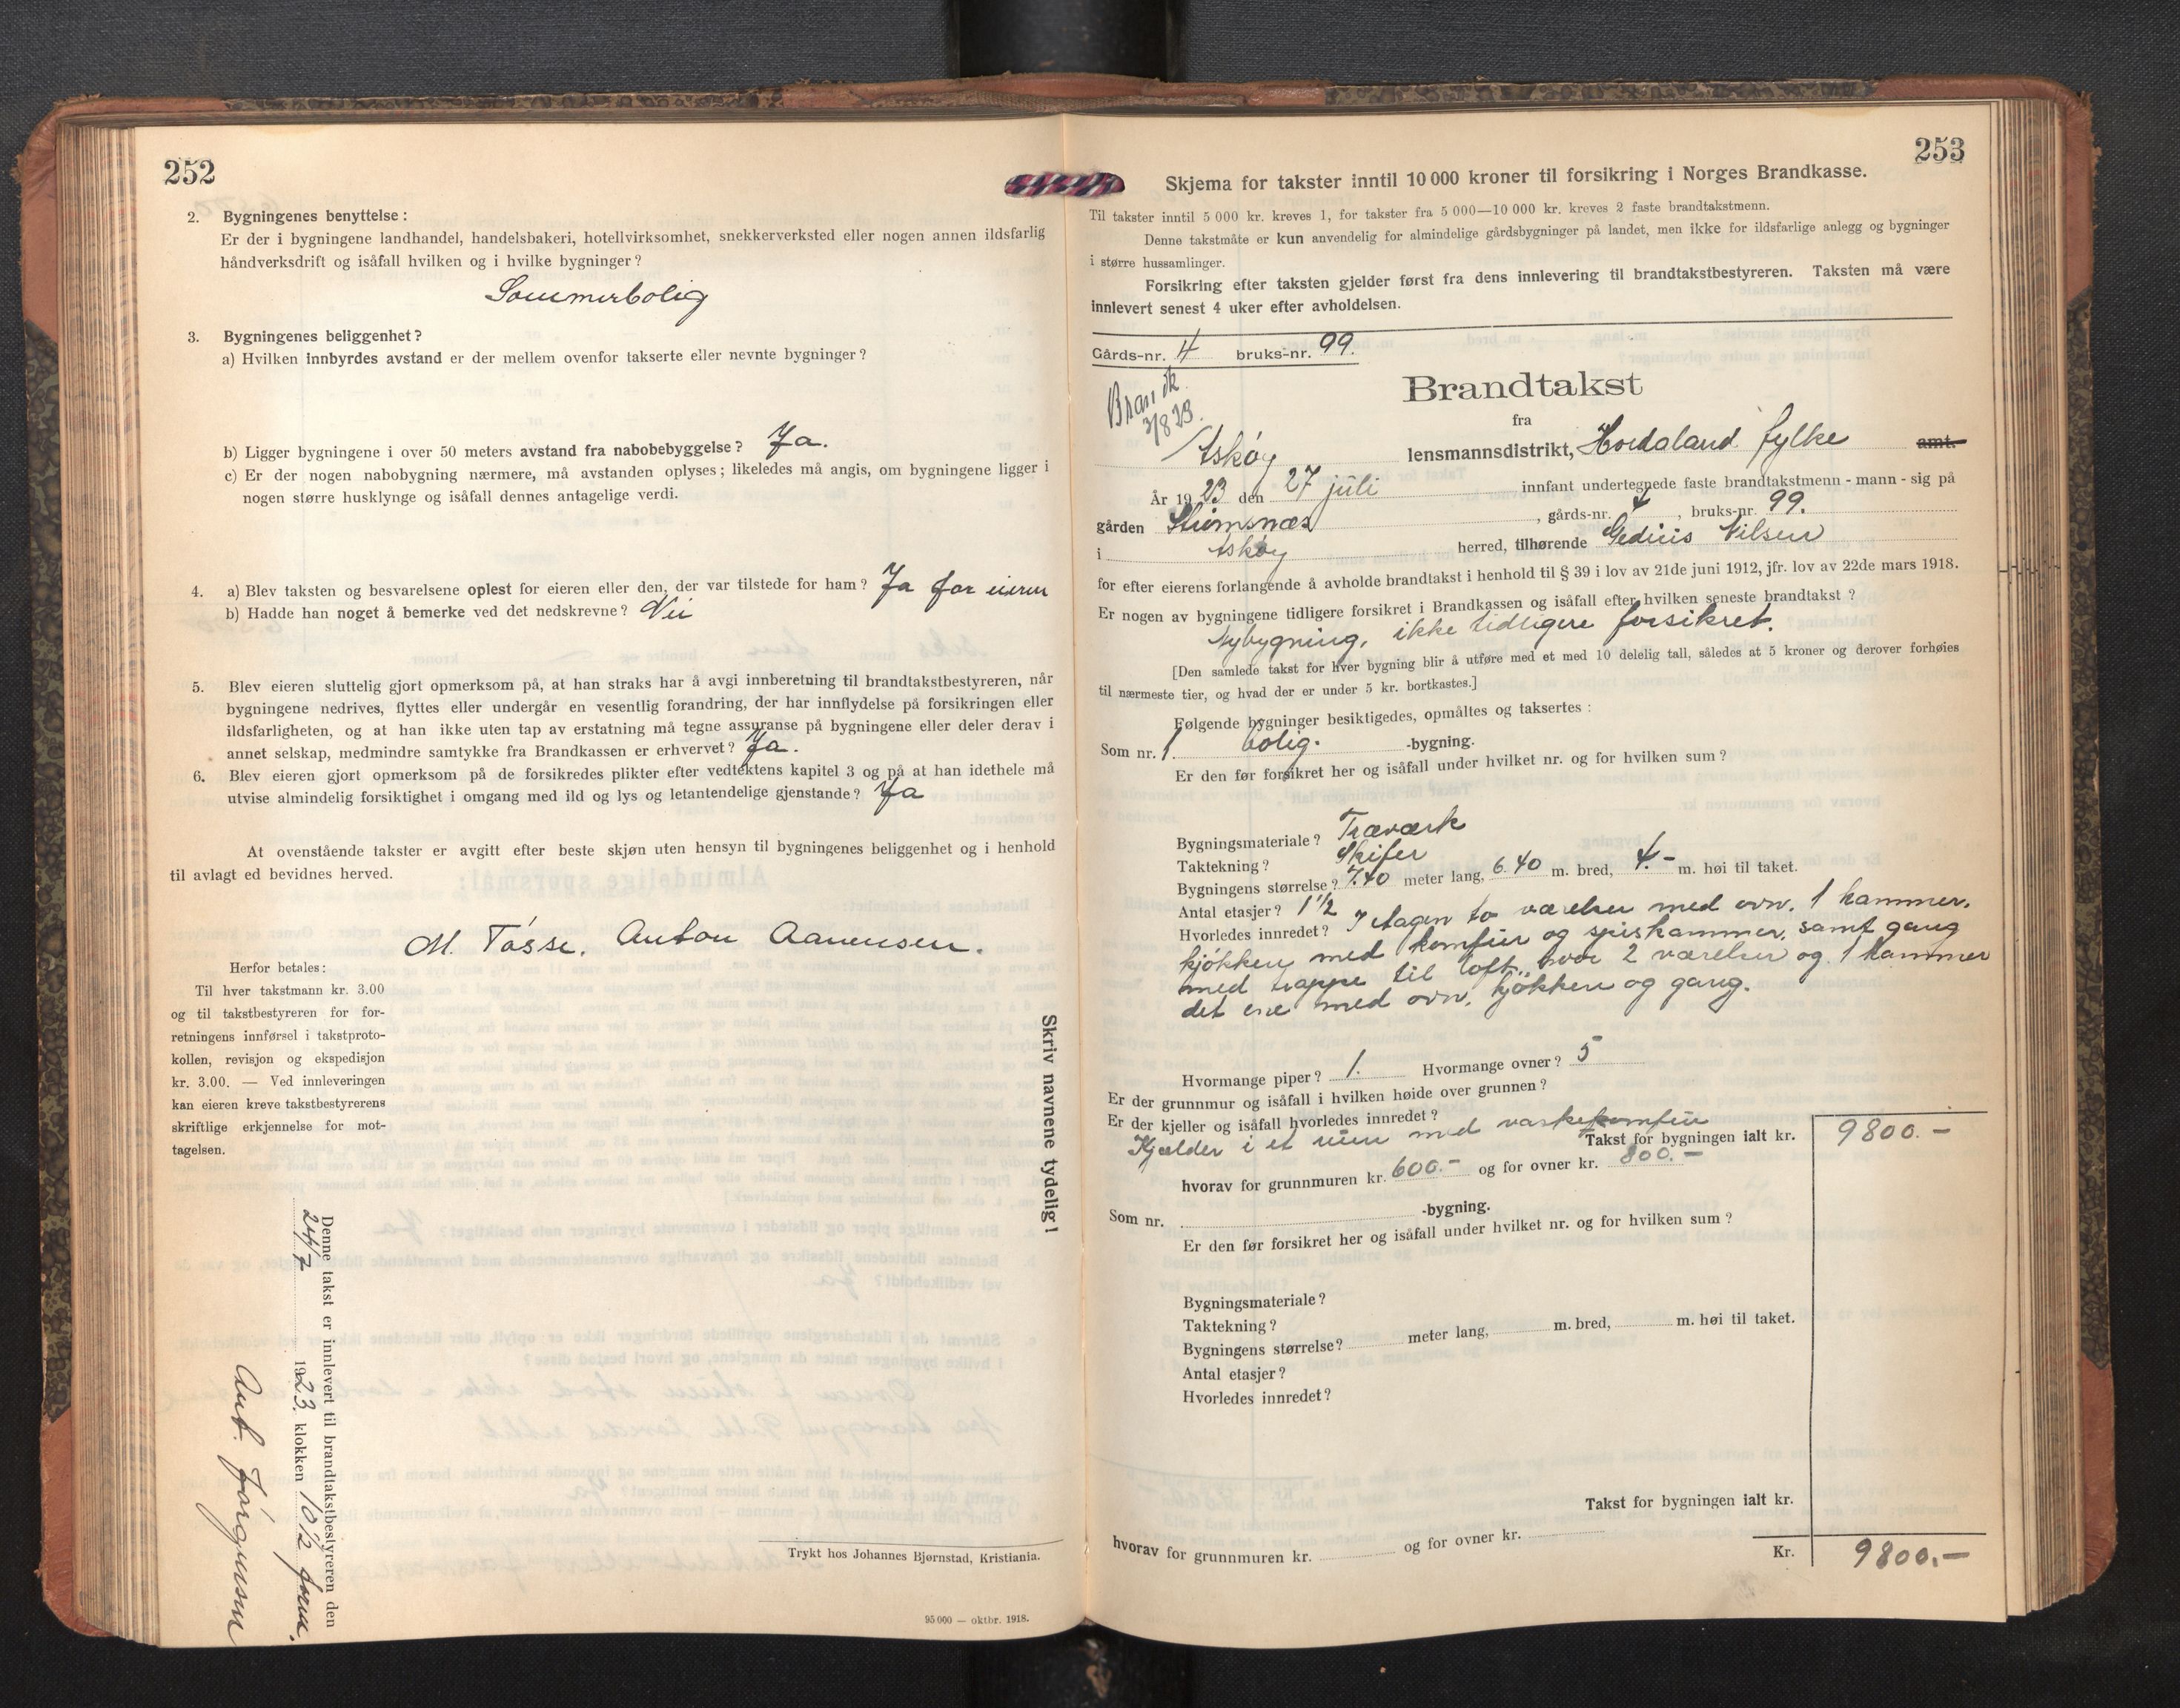 252
2. Bygningenes benyttelse:
Er der i bygningene landhandel, handelsbakeri, hotellvirksomhet, snekkerverksted eller nogen annen ildsfarlig
håndverksdrift og isåfall hvilken og i hvilke bygninger?
Sommerbolig
3. Bygningenes beliggenhet?
a) Hvilken innbyrdes avstand er der mellem ovenfor takserte eller nevnte bygninger?
b) Ligger bygningene i over 50 meters avstand fra nabobebyggelse? Ja.
c) Er der nogen nabobygning nærmere, må avstanden oplyses; likeledes må angis, om bygningene ligger i
nogen større husklynge og isåfall dennes antagelige verdi.
4. a) Blev taksten og besvarelsene oplest for eieren eller den, der var tilstede for ham? Ja for eieren
b) Hadde han noget å bemerke ved det nedskrevne? Nei
5. Blev eieren sluttelig gjort opmerksom på, at han straks har å avgi innberetning til brandtakstbestyreren, når
bygningene nedrives, flyttes eller undergår en vesentlig forandring, der har innflydelse på forsikringen eller
ildsfarligheten, og at han ikke uten tap av erstatning må tegne assuranse på bygningene eller deler derav i
annet selskap, medmindre samtykke fra Brandkassen er erhvervet? Ja.
6. Blev eieren gjort opmerksom på de forsikredes plikter efter vedtektens kapitel 3 og på at han idethele må
utvise almindelig forsiktighet i omgang med ild og lys og letantendelige gjenstande? Ja
At ovenstående takster er avgitt efter beste skjøn uten hensyn til bygningenes beliggenhet og i henhold
til avlagt ed bevidnes herved.
M. Tøsse. Anton Aanensen.
Herfor betales:
Til hver takstmann kr. 3.00
og til takstbestyreren for for-
retningens innførsel i takstproto-
kollen, revisjon og ekspedisjon
kr. 3.00. — Ved innleveringen
kan eieren kreve takstbestyrerens
skriftlige erkjennelse for mot-
tagelsen.
Skriv navnene tydelig!
Denne takst er innlevert til brandtakstbestyreren den
24/7 1923. klokken 10 1/2 form.
Ant. Jørgensen
Trykt hos Johannes Bjørnstad, Kristiania.
95 000 — oktbr. 1918.
253
Skjema for takster inntil 10 000 kroner til forsikring i Norges Brandkasse.
Til takster inntil 5 000 kr. kreves 1, for takster fra 5 000—10 000 kr. kreves 2 faste brandtakstmenn.
Denne takstmåte er kun anvendelig for almindelige gårdsbygninger på landet, men ikke for ildsfarlige anlegg og bygninger
i større hussamlinger.
Forsikring efter taksten gjelder først fra dens innlevering til brandtakstbestyreren. Taksten må være
innlevert senest 4 uker efter avholdelsen.
Gårds-nr. 4 bruks-nr. 99.
3/8 23.
Brandtakst
fra
Askøy lensmannsdistrikt, Hordaland fylke amt.
År 1923 den 27 juli innfant undertegnede faste brandtakstmenn - mann - sig på
gården Strømsnæs, gårds-nr. 4, bruks-nr. 99.
i Askøy herred, tilhørende Nilsen
for efter eierens forlangende å avholde brandtakst i henhold til § 39 i lov av 21de juni 1912, jfr. lov av 22de mars 1918.
Er nogen av bygningene tidligere forsikret i Brandkassen og isåfall efter hvilken seneste brandtakst?
Nybygning, ikke tidligere forsikret.
[Den samlede takst for hver bygning blir å utføre med et med 10 delelig tall, således at 5 kroner og derover forhøies
til nærmeste tier, og hvad der er under 5 kr. bortkastes.]
Følgende bygninger besiktigedes, opmåltes og taksertes:
Som nr. 1 bolig. -bygning.
Er den før forsikret her og isåfall under hvilket nr. og for hvilken sum?
Bygningsmateriale? Træværk
Taktekning? Skifer
Bygningens størrelse? 7.40 meter lang, 6.40 m. bred, 4.- m. høi til taket.
Antal etasjer? 1 1/2
Hvorledes innredet? I etagen to værelser med ovn. 1 kammer.
kjøkken med komfür og spiskammer, samt gang
med trappe til loft, hvor 2 værelser og 1 kammer
det ene med ovn, kjøkken og gang.
Hvormange piper? 1. Hvormange ovner? 5
Er der grunnmur og isåfall i hvilken høide over grunnen?
Er der kjeller og isåfall hvorledes innredet?
Kjælder i et rüm med vaskekomfür
Takst for bygningen ialt kr. 9800.-
hvorav for grunnmuren kr. 600.- og for ovner kr. 800.-
Som nr. -bygning.
Er den før forsikret her og isåfall under hvilket nr. og for hvilken sum?
Bygningsmateriale?
Taktekning?
Bygningens størrelse? meter lang, m. bred, m. høi til taket.
Antal etasjer?
Hvorledes innredet?
Takst for bygningen ialt kr.
hvorav for grunnmuren kr. og for ovner kr.
Kr. 9800.-